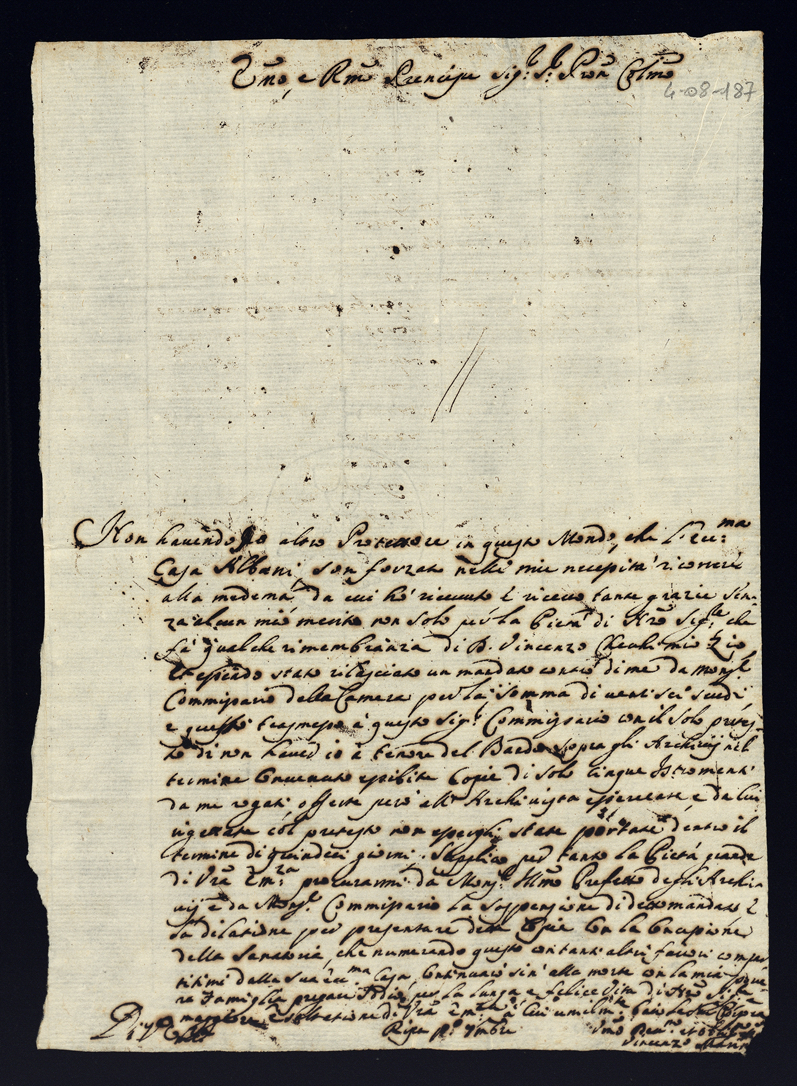 Emo, e Rmo Prencipe Sig.r Sr. Pron Colmo
4-08-187
Non havendo Io altro Protettore in questo Mondo, che l'Ecc:ma
Casa Albani, son forzato nelle mie necessità ricorrere
alla medema da cui hò ricevuto è ricevo tante grazie sen-
za alcun mio merito non solo per la Pietà di Nro Sig.re che
fà qualche rimembranza di D. Vincenzo mio Zio
et essendo stato rilasciato un mandato contro di me da Mons.r
Commissario della Camera per la somma di venti sei scudi
e questo trasmesso à questo Sig.r Commissario con il solo prete-
sto di non haver io à tenore del Bando sopra gli Archivij nel
termine convenuto esibite Copie di solo cinque Istromenti
da me rogati offerte però all' Archivista e da lui
rigettate col pretesto non essergli state portate dentro il
termine di quindeci giorni. Supplico per tanto la Pietà grande
di Vra Em:za procurarmi da Mons.r Illmo Prefetto degli Archi-
vij e da Mons.r Commissario la sospensione di detto mandato è
la dilatione per presentare dette Copie con la
della Sanatoria, che numerando questo con tanti altri favori compar-
titimi dalla sua Ecc:ma Casa, continuarò sin' alla morte con la mia pove-
ra Famiglia pregare Iddio per la lunga e felice Vita di Nro Sig.re
maggiore esaltatione di Vra Em:za à cui umilm.te bacio
Di V. Em.
Ripa Pr.o 9mbre
Umo
Vincenzo